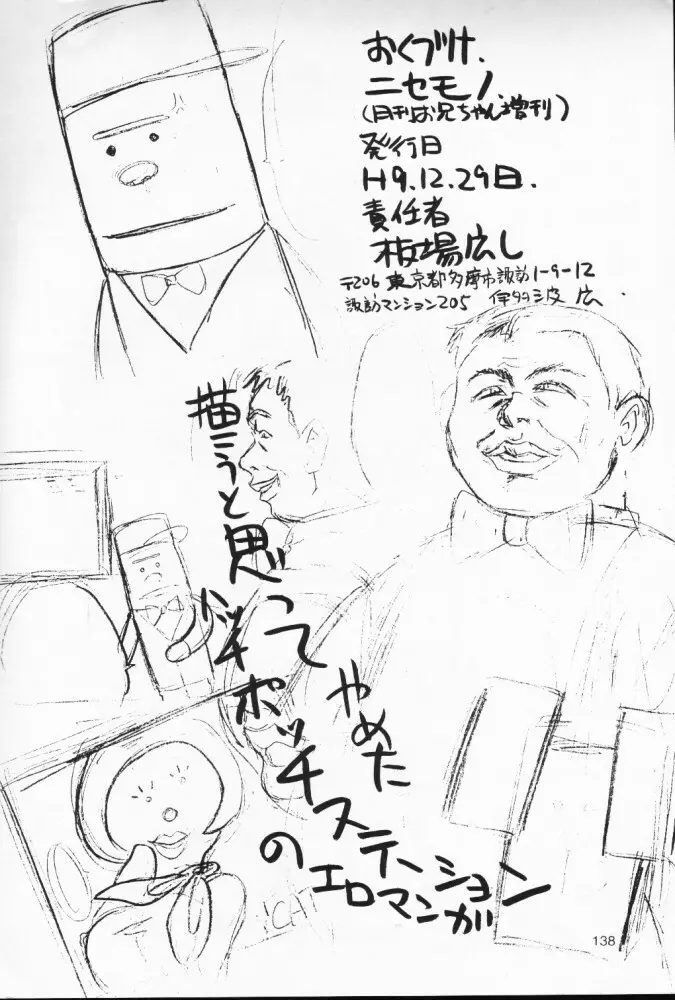 おくづけ.
ニセモノ.
(月刊お兄ちゃん増刊)
発行日
H9.12.29日.
責任者
板場広し
〒206 東京都多摩市諏訪1-9-12
諏訪マンション205 伊多波 広.
描こうと思って
やめた
ハッチポッチステーション
のエロマンガ
CHT
138